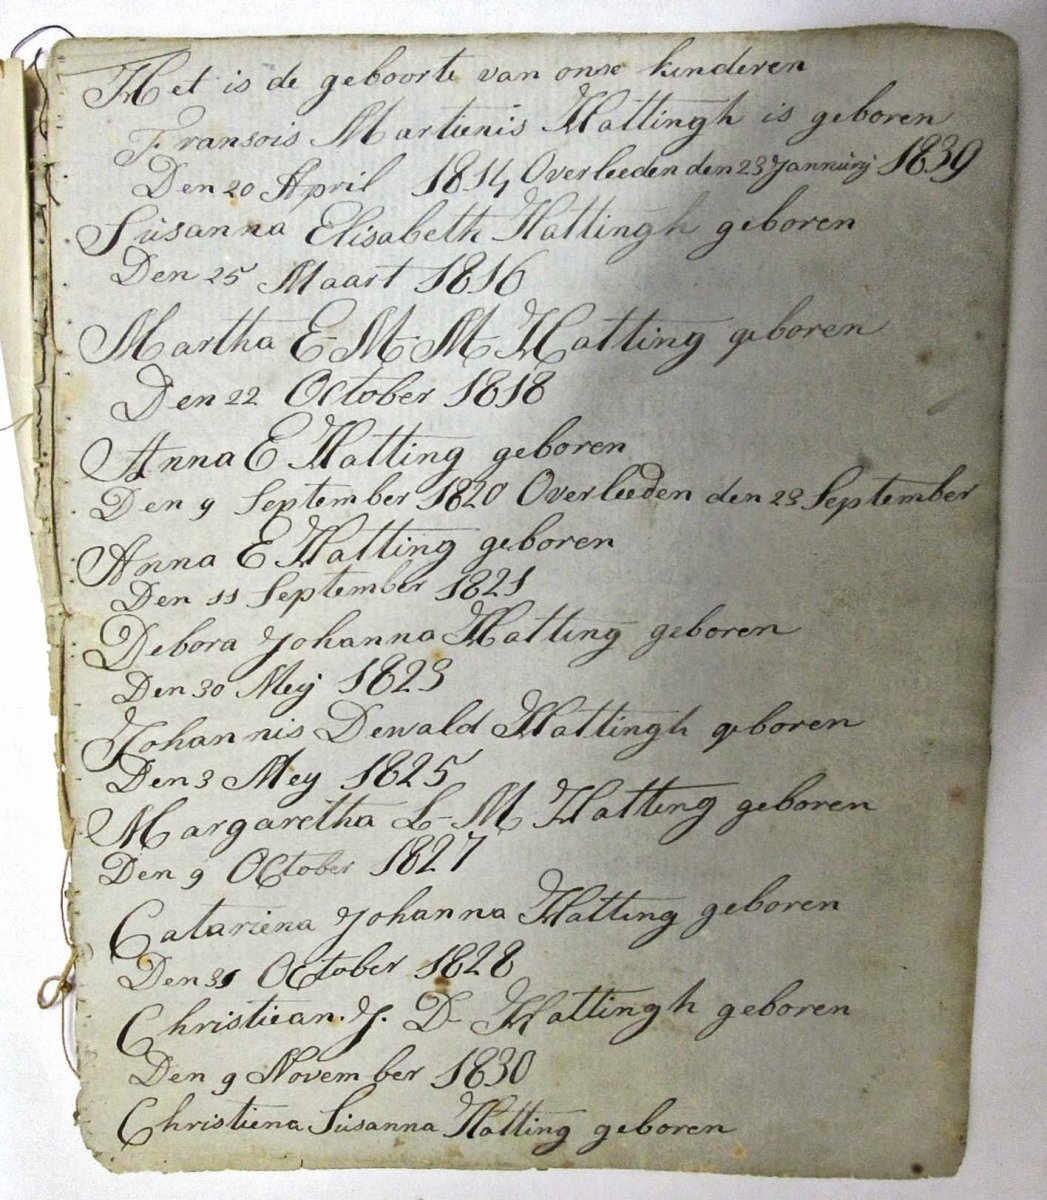 Het is de geboorte van onse kinderen
Fransois Martienis Hattingh is geboren
Den 20 April 1814 Overleeden den 23 Januarij 1839
Susanna Elisabeth Hattingh geboren
Den 25 Maart 1816
Martha E-M-M Hatting geboren
Den 22 October 1818
Anna E Hatting geboren
Den 9 September 1820 Overleeden den 23 September
Anna E Hatting geboren
Den 11 September 1821
Debora Johanna Hatting geboren
Den 30 Meij 1823
Johannis Dewald Hattingh geboren
Den 3 Mey 1825
Margaretha L-M Hatting geboren
Den 9 October 1827
Catariena Johanna Hatting geboren
Den 31 October 1828
Christiean. J. D- Hattingh geboren
Den 9 November 1830
Christiena Susanna Hatting geboren